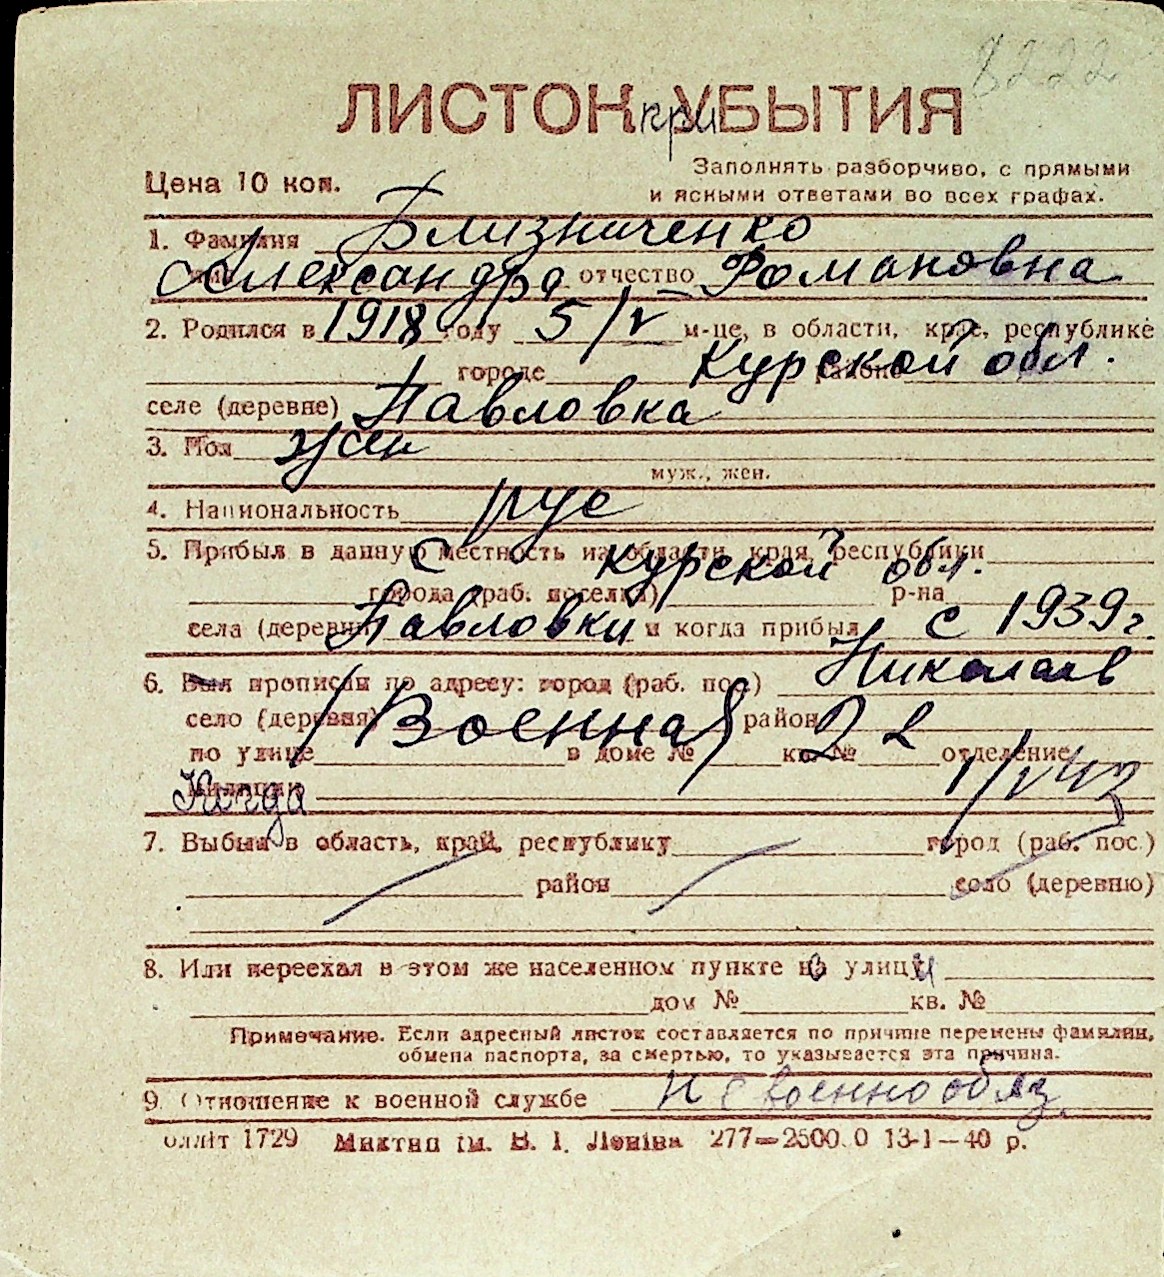 8222
ЛИСТОК при УБЫТИЯ
Цена 10 коп.
Заполнять разборчиво, с прямыми
и ясными ответами во всех графах.
1. Фамилия Близниченко
имя Александра отчество Романовна
2. Родился в 1918 году 5/V м-це, в области, крае, республике
городе районе Курской обл.
селе (деревне) Павловка
3. Пол жен
муж., жен.
4. Национальность рус
5. Прибыл в данную местность из области, края, республики
с Курской обл.
города (раб. поселка) р-на
села (деревни) Павловки и когда прибыл с 1939 г.
6. Был прописан по адресу: город (раб. пос.) Николаев
село (деревня) I Военная район 22
по улице в доме № кв. № отделение
милиции Когда 1/IV 43
7. Выбыл в область, край, республику город (раб. пос.)
район село (деревню)
8. Или переехал в этом же населенном пункте на улицу
дом № кв. №
Примечание. Если адресный листок составляется по причине перемены фамилии,
обмена паспорта, за смертью, то указывается эта причина.
9. Отношение к военной службе невоеннообяз
олліт 1729 Миктип ім. В. І. Леніна 277—2500.0 13-1—40 р.